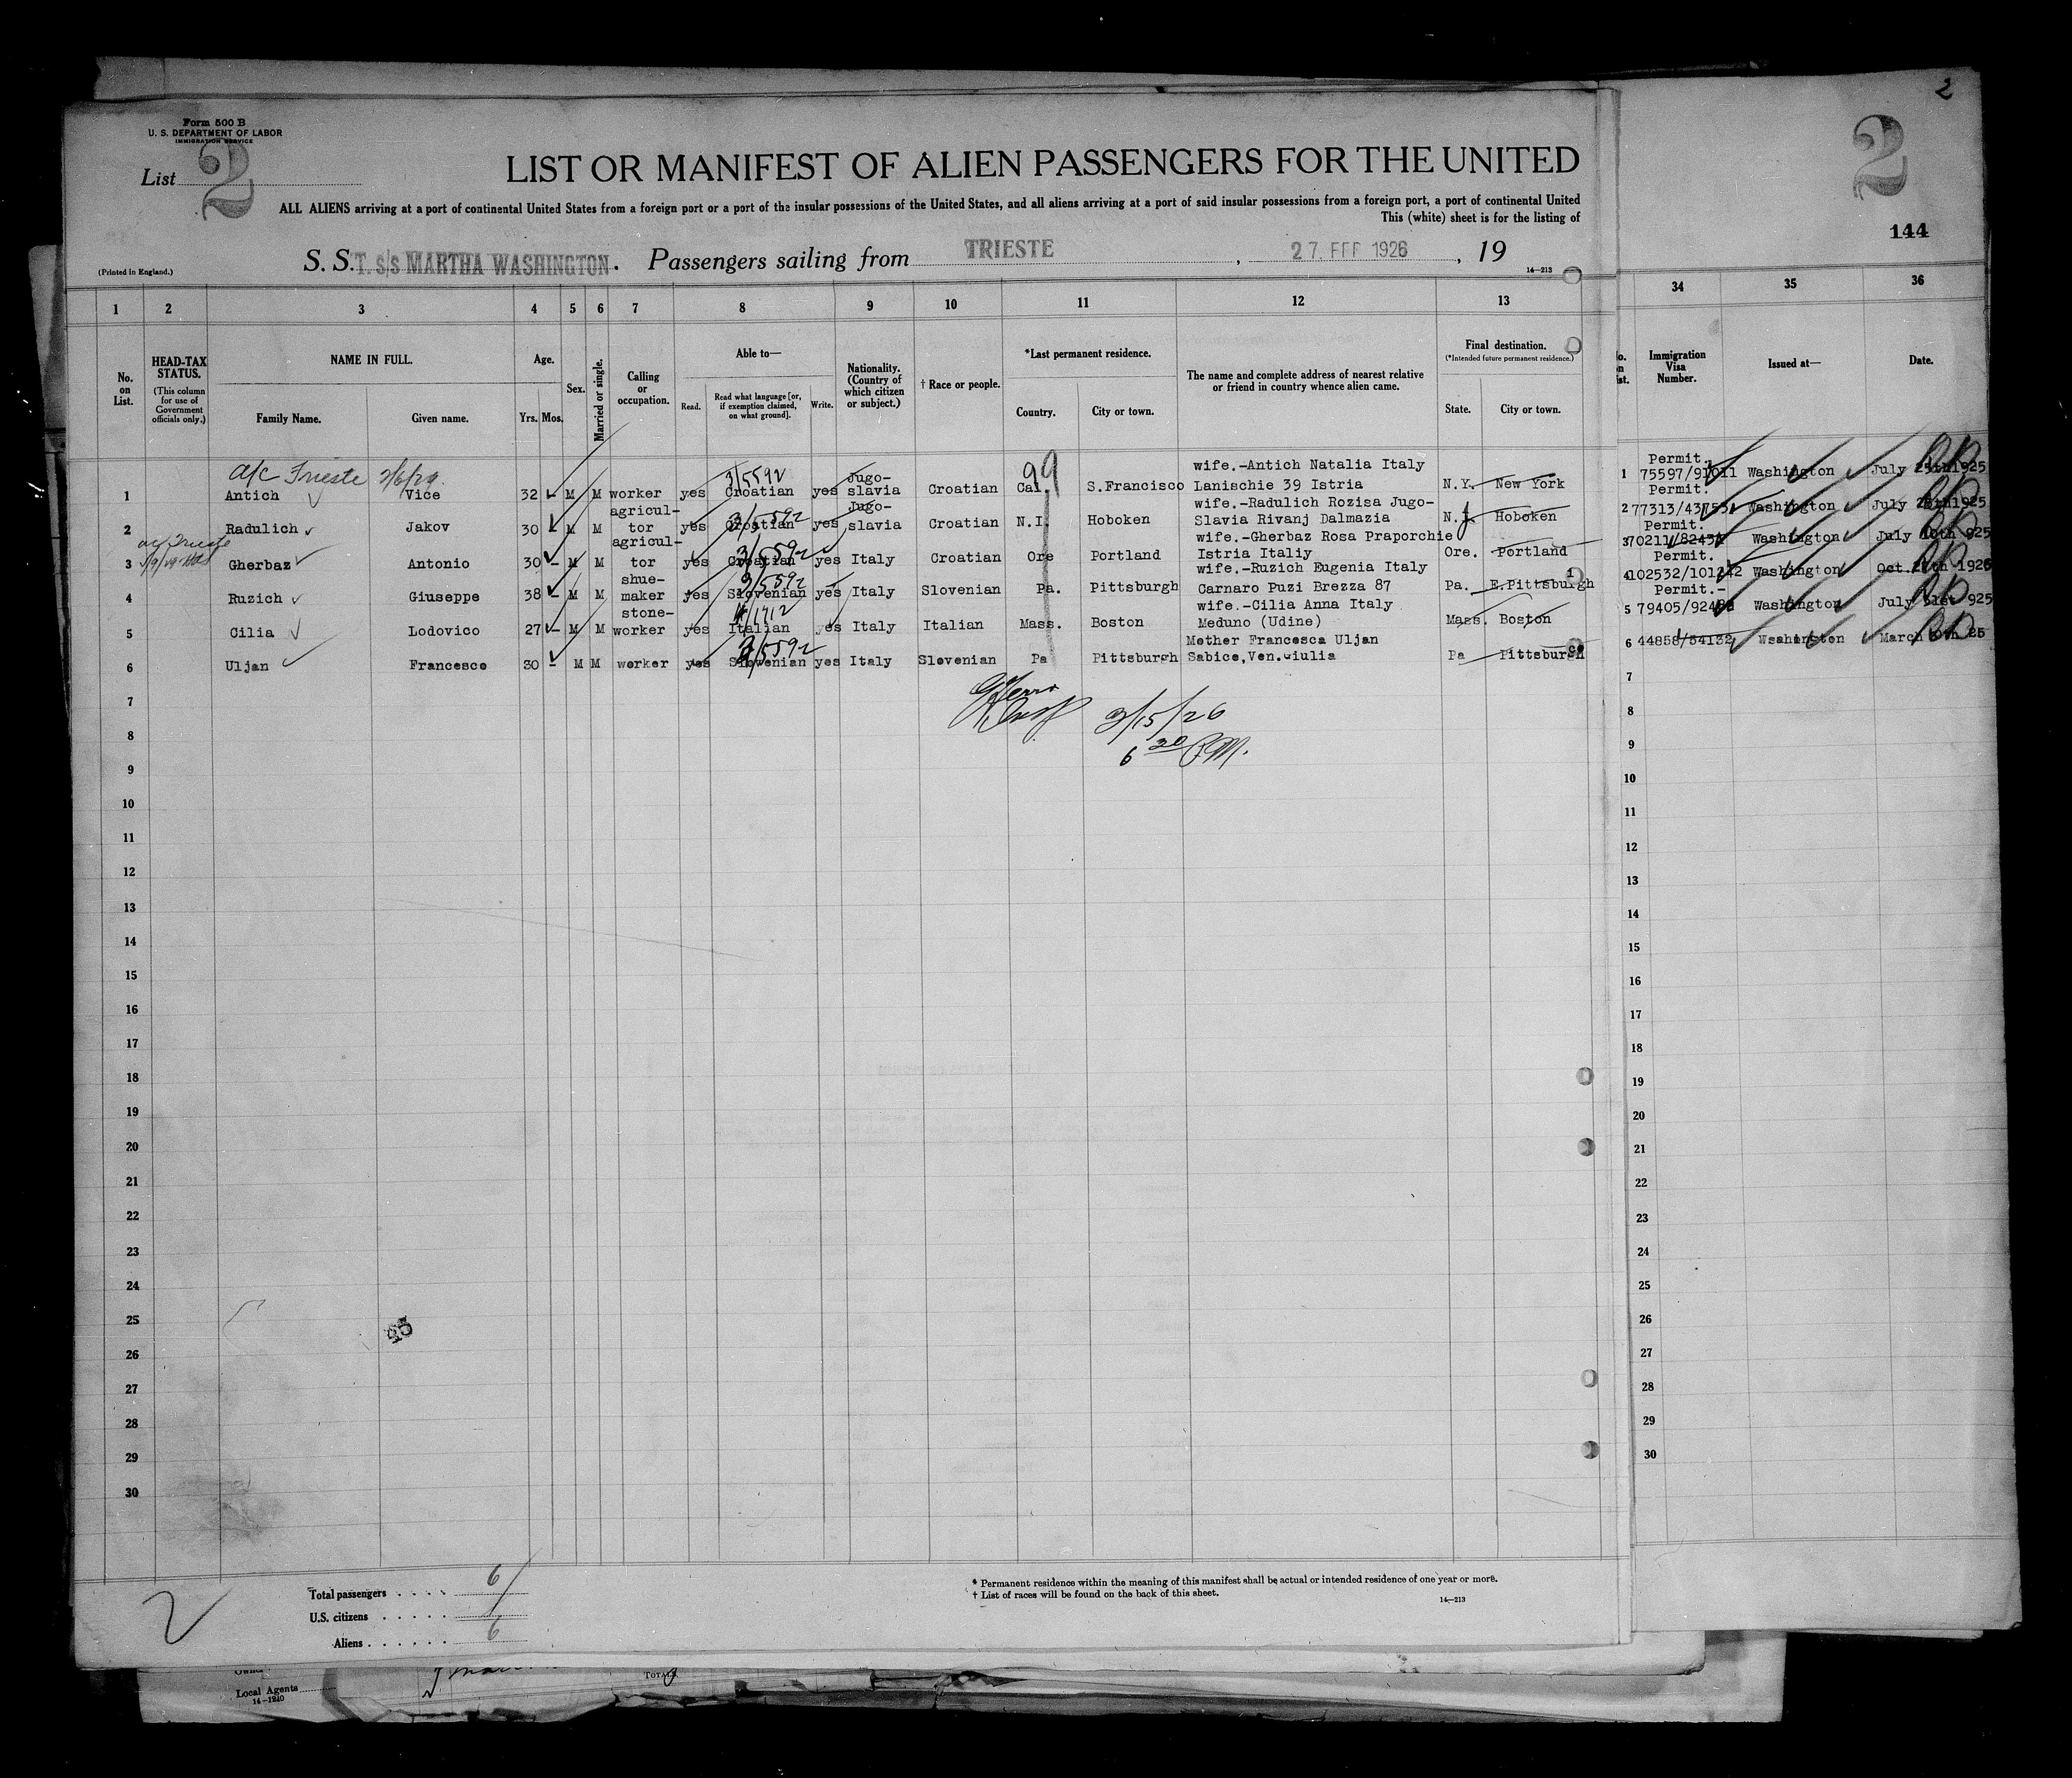 2
Form 500 B
U. S. DEPARTMENT OF LABOR
IMMIGRATION SERVICE
List 2
2
LIST OR MANIFEST OF ALIEN PASSENGERS FOR THE UNITED
ALL ALIENS arriving at a port of continental United States from a foreign port or a port of the insular possessions of the United States, and all aliens arriving at a port of said insular possessions from a foreign port, a port of continental United
This (white) sheet is for the listing of
144
(Printed in England.)
S. S. T. s/s MARTHA WASHINGTON. Passengers sailing from TRIESTE, 27. FEB 1926, 19
14—213
1 2 3 4 5 6 7 8 9 10 11 12 13 34 35 36
No. on List.
HEAD-TAX STATUS.
(This column for use of Government officials only.)
NAME IN FULL.
Family Name. Given name.
Age.
Yrs. Mos.
Sex.
Married or single.
Calling or occupation.
Able to—
Read. Read what language [or, if exemption claimed, on what ground]. Write.
Nationality. (Country of which citizen or subject.)
† Race or people.
*Last permanent residence.
Country. City or town.
The name and complete address of nearest relative or friend in country whence alien came.
Final destination.
(*Intended future permanent residence.)
State. City or town.
Immigration Visa Number.
Issued at—
Date.
a/c Trieste 2/6/29. 3/5592 99
1 Antich Vice 32 - M M worker yes Croatian yes Jugo-slavia Croatian Cal. S.Francisco wife.-Antich Natalia Italy Lanischie 39 Istria N.Y. New York 1 Permit. 75597/91011 Washington July 25th 1925
3/5592
2 Radulich Jakov 30 - M M agricul-tor yes Croatian yes Jugo-slavia Croatian N.I. Hoboken wife.-Radulich Rozisa Jugo-Slavia Rivanj Dalmazia N.J. Hoboken 2 Permit. Washington July 1925
a/c Trieste
3/5592
3 Gherbaz Antonio 30 - M M agricul-tor yes Croatian yes Italy Croatian Ore Portland wife.-Gherbaz Rosa Praporchie Istria Italiy Ore. Portland 3 Permit. Washington July 10th 925
3/5592
4 Ruzich Giuseppe 38 - M M shue-maker yes Slovenian yes Italy Slovenian Pa. Pittsburgh wife.-Ruzich Eugenia Italy Carnaro Puzi Brezza 87 Pa. E.Pittsburgh 4 Permit. Washington Oct. 1925
5 Cilia Lodovico 27 - M M stone-worker yes Italian yes Italy Italian Mass. Boston wife.-Cilia Anna Italy Meduno (Udine) Mass. Boston 5 Permit.- Washington July 925
3/5592
6 Uljan Francesco 30 - M M worker yes Slovenian yes Italy Slovenian Pa Pittsburgh Mother Francesca Uljan Sabice,Ven.Giulia Pa Pittsburgh 6 44858/54132 Washington March 25
3/15/26
6 30 P.M.
7 7
8 8
9 9
10 10
11 11
12 12
13 13
14 14
15 15
16 16
17 17
18 18
19 19
20 20
21 21
22 22
23 23
24 24
25 25
26 26
27 27
28 28
29 29
30 30
Total passengers . . . . 6
U.S. citizens . . . . .
Aliens . . . . . . 6
2
* Permanent residence within the meaning of this manifest shall be actual or intended residence of one year or more.
† List of races will be found on the back of this sheet.
14—213
Local Agents
14—1240
TOTALS